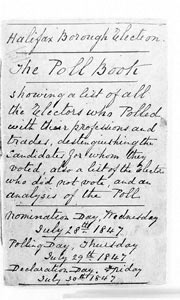 Halifax Borough Election.
The Poll Book
showing a list of all
the Electors who Polled
with their professions and
trades, destenguishing the
Candidates for whom they
voted, also a list of the Electors
who did not vote, and an
analyses of the Poll
Nomination Day, Wednesday
July 28th 1847
Polling Day, Thursday
July 29th 1847
Declaration Day, Friday
July 30th 1847